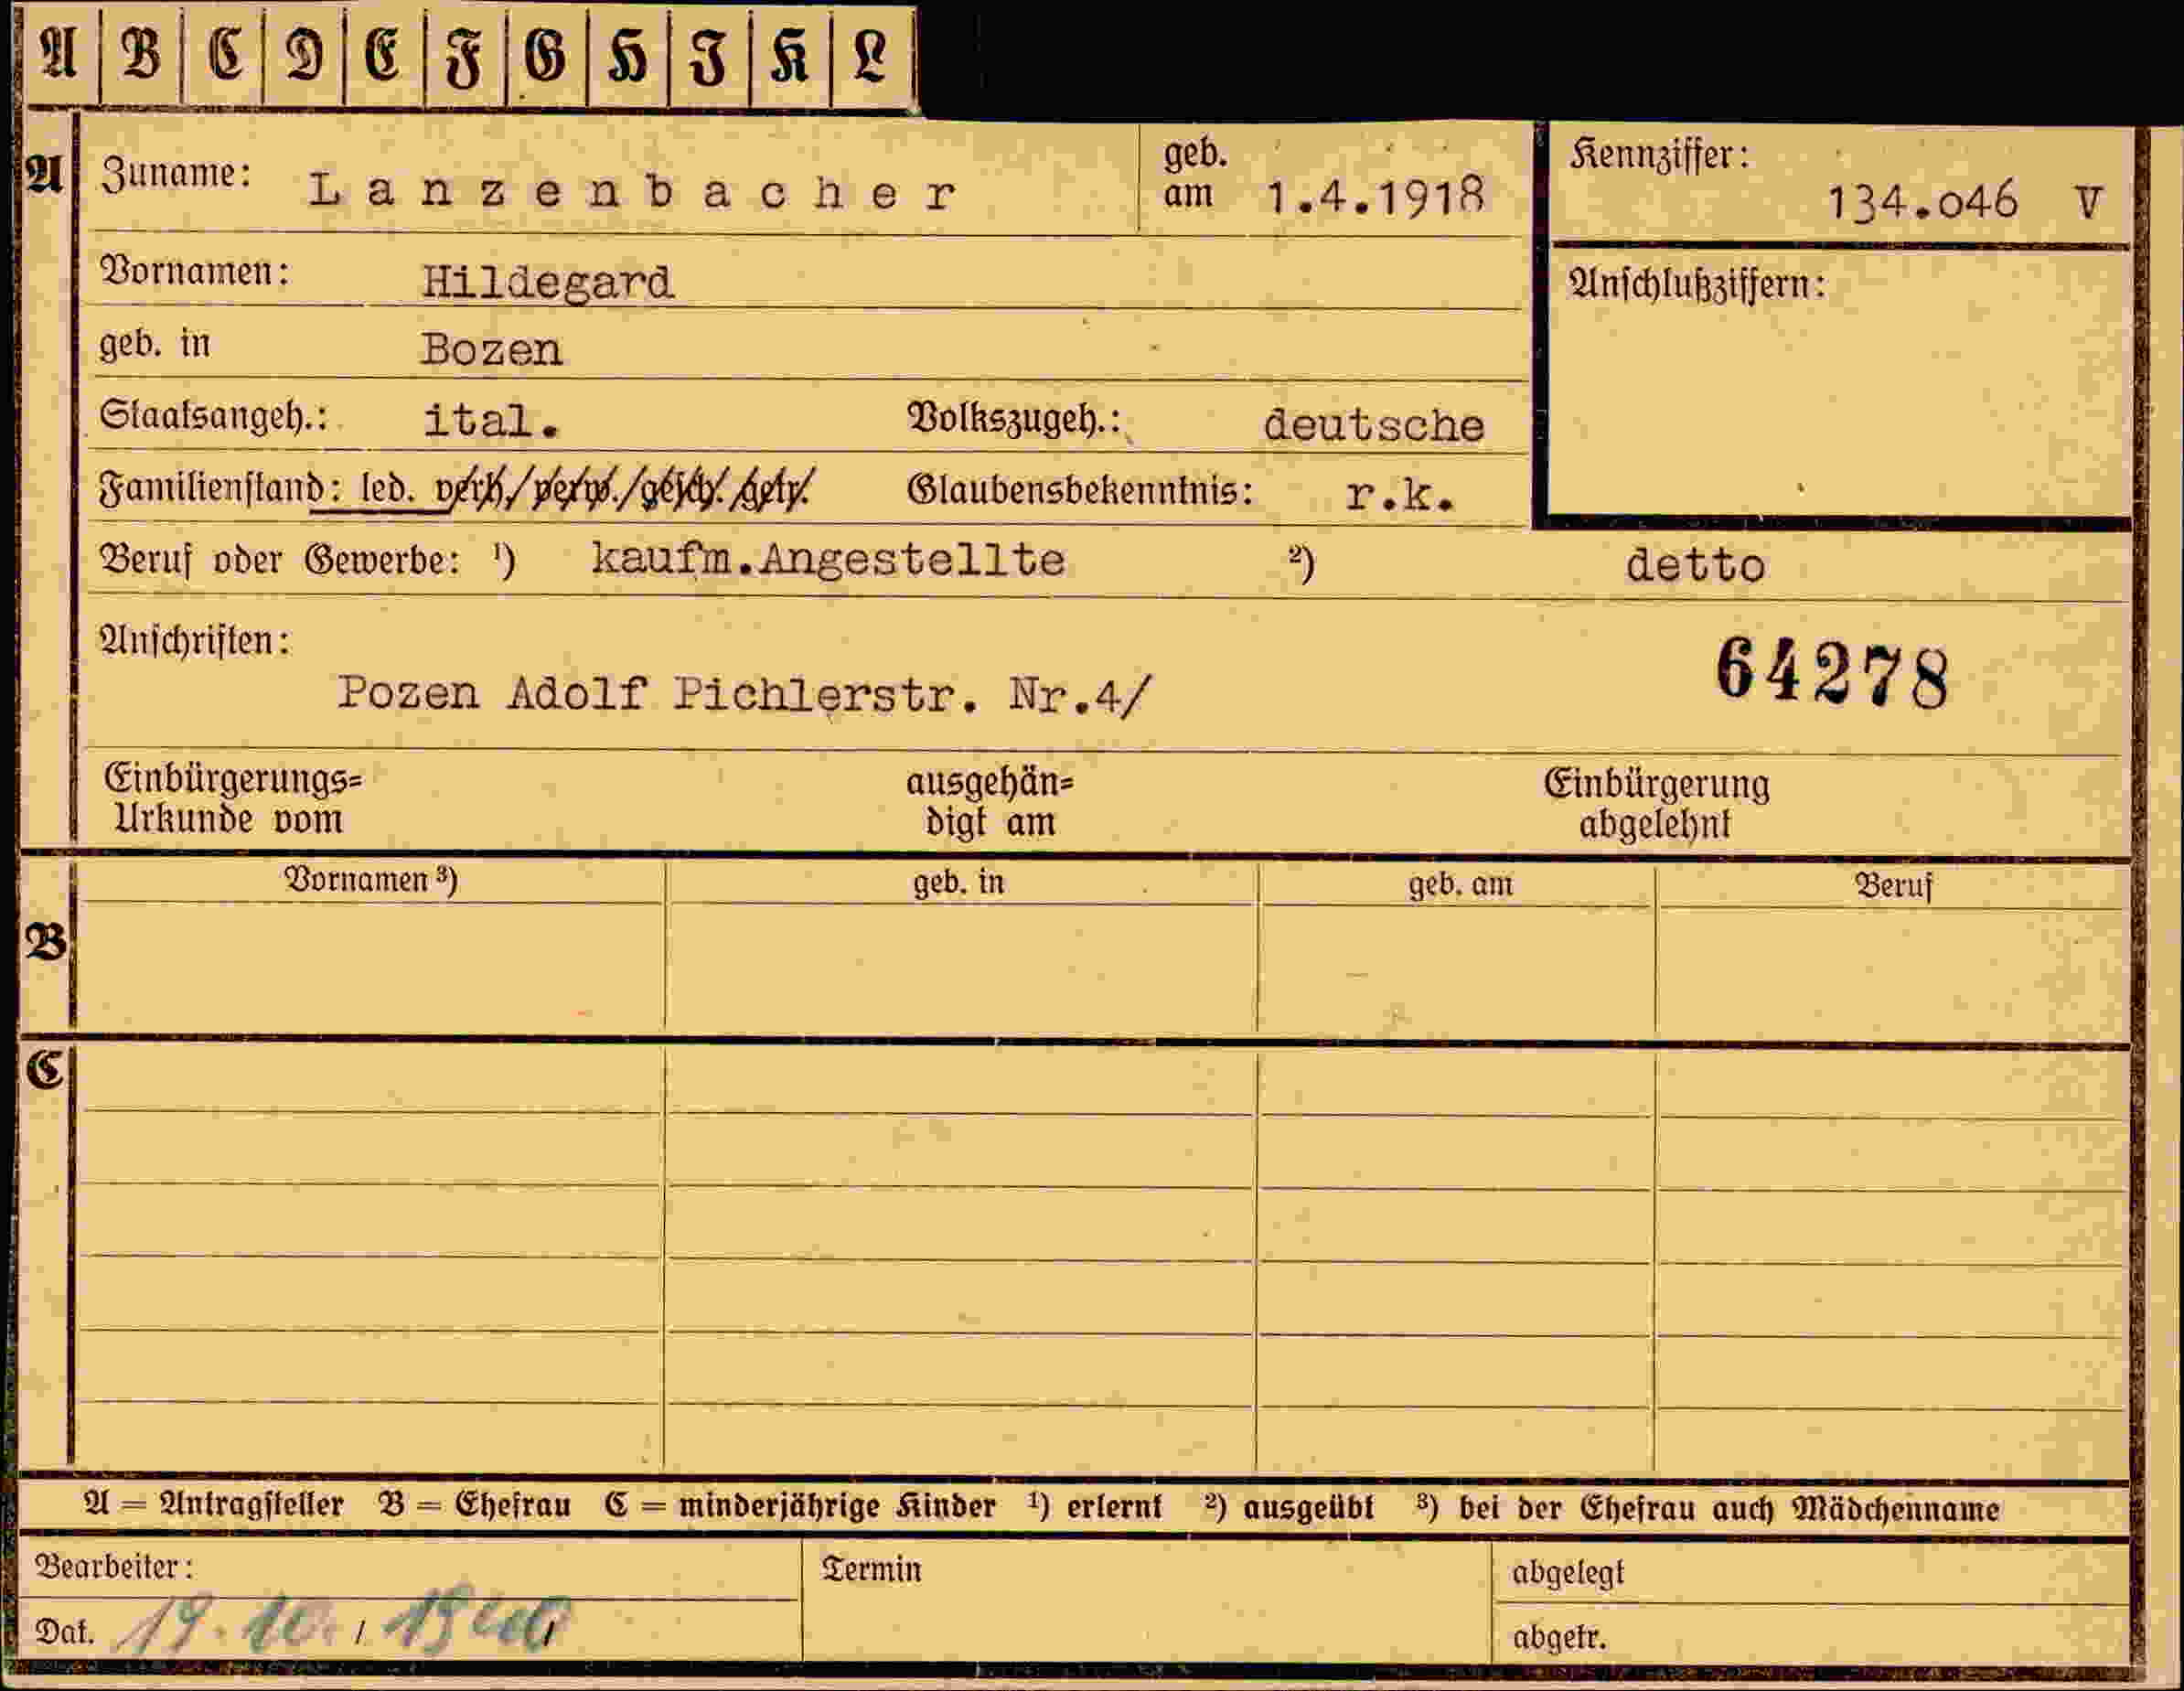 A B C D E F G H I K L
A Zuname: Lanzenbacher geb. am 1.4.1918 Kennziffer: 134.o46 V
Vornamen: Hildegard Anschlußziffern:
geb. in Bozen
Staatsangeh.: ital. Volkszugeh.: deutsche
Familienstand: led. verh./verw./gesch./getr. Glaubensbekenntnis: r.k.
Beruf oder Gewerbe: ¹) kaufm.Angestellte ²) detto
Anschriften: 64278
Pozen Adolf Pichlerstr. Nr.4/
Einbürgerungs= ausgehän= Einbürgerung
Urkunde vom digt am abgelehnt
Vornamen ³) geb. in geb. am Beruf
B
C
A = Antragsteller B = Ehefrau C = minderjährige Kinder ¹) erlernt ²) ausgeübt ³) bei der Ehefrau auch Mädchenname
Bearbeiter: Termin abgelegt
Dat. 19.10./1940 abgetr.